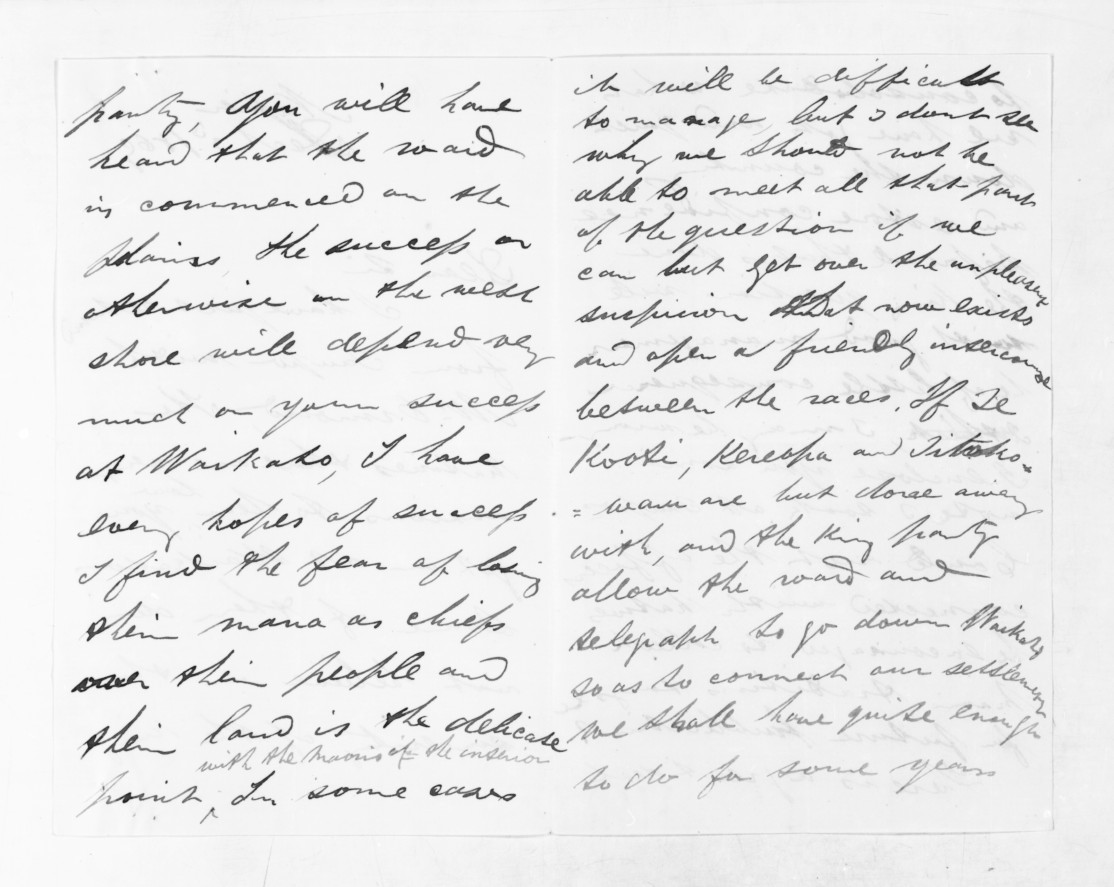 party, You will have
heard that the road
is commenced on the
plains the success or
otherwise on the west
shore will depend very
much on your success
at Waikato, I have
every hopes of success
I find the fear of losing
their mana as chiefs
over their people and
their land is the delicate
with the Maoris of the interior
point, In some cases
it will be difficult
to manage, but I dont see
why we should not be
able to meet all that part
of the question if we
can but get over the unpleasant
suspicion that now exists
and open a friendly intercourse
between the races. If Te
Kooti, Kereopa and Titoko-
=waru are but done away
with, and the King party
allow the road and
telegraph to go down Waikato
so as to connect our settlements
we shall have quite enough
to do for some years